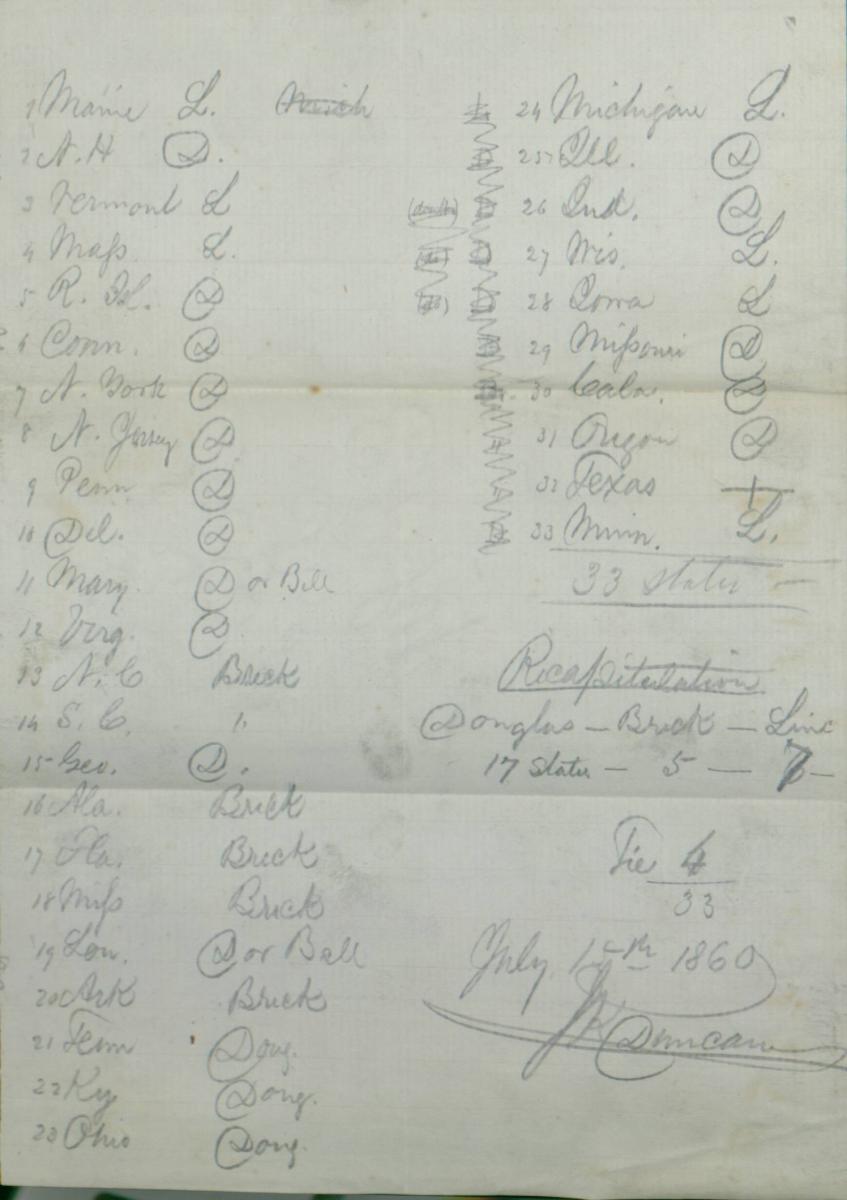 1 Maine L.
2 N. H D.
3 Vermont L
4 Mass. L.
5 R. Isl. D
6 Conn. D
7 N. York D
8 N. Jersey D
9 Penn D
10 Del. D
11 Mary. D or Bell
12 Virg. D
13 N. C Breck
14 S. C. "
15 Geo. D.
16 Ala. Breck
17 Fla. Breck
18 Miss Breck
19 Lou. D or Bell
20 Ark Breck
21 Tenn Doug.
22 Ky Doug.
23 Ohio Doug.
24 Michigan L.
25 Ill. D
26 Ind. D
27 Wis. L.
28 Iowa L
29 Missouri D
30 Cala. D
31 Oregon D
32 Texas +
33 Minn. L.
33 states —
Recapitulation
Douglas — Breck — Linc
17 States — 5 — 7 —
Tie 4
33
July 1860
Duncan